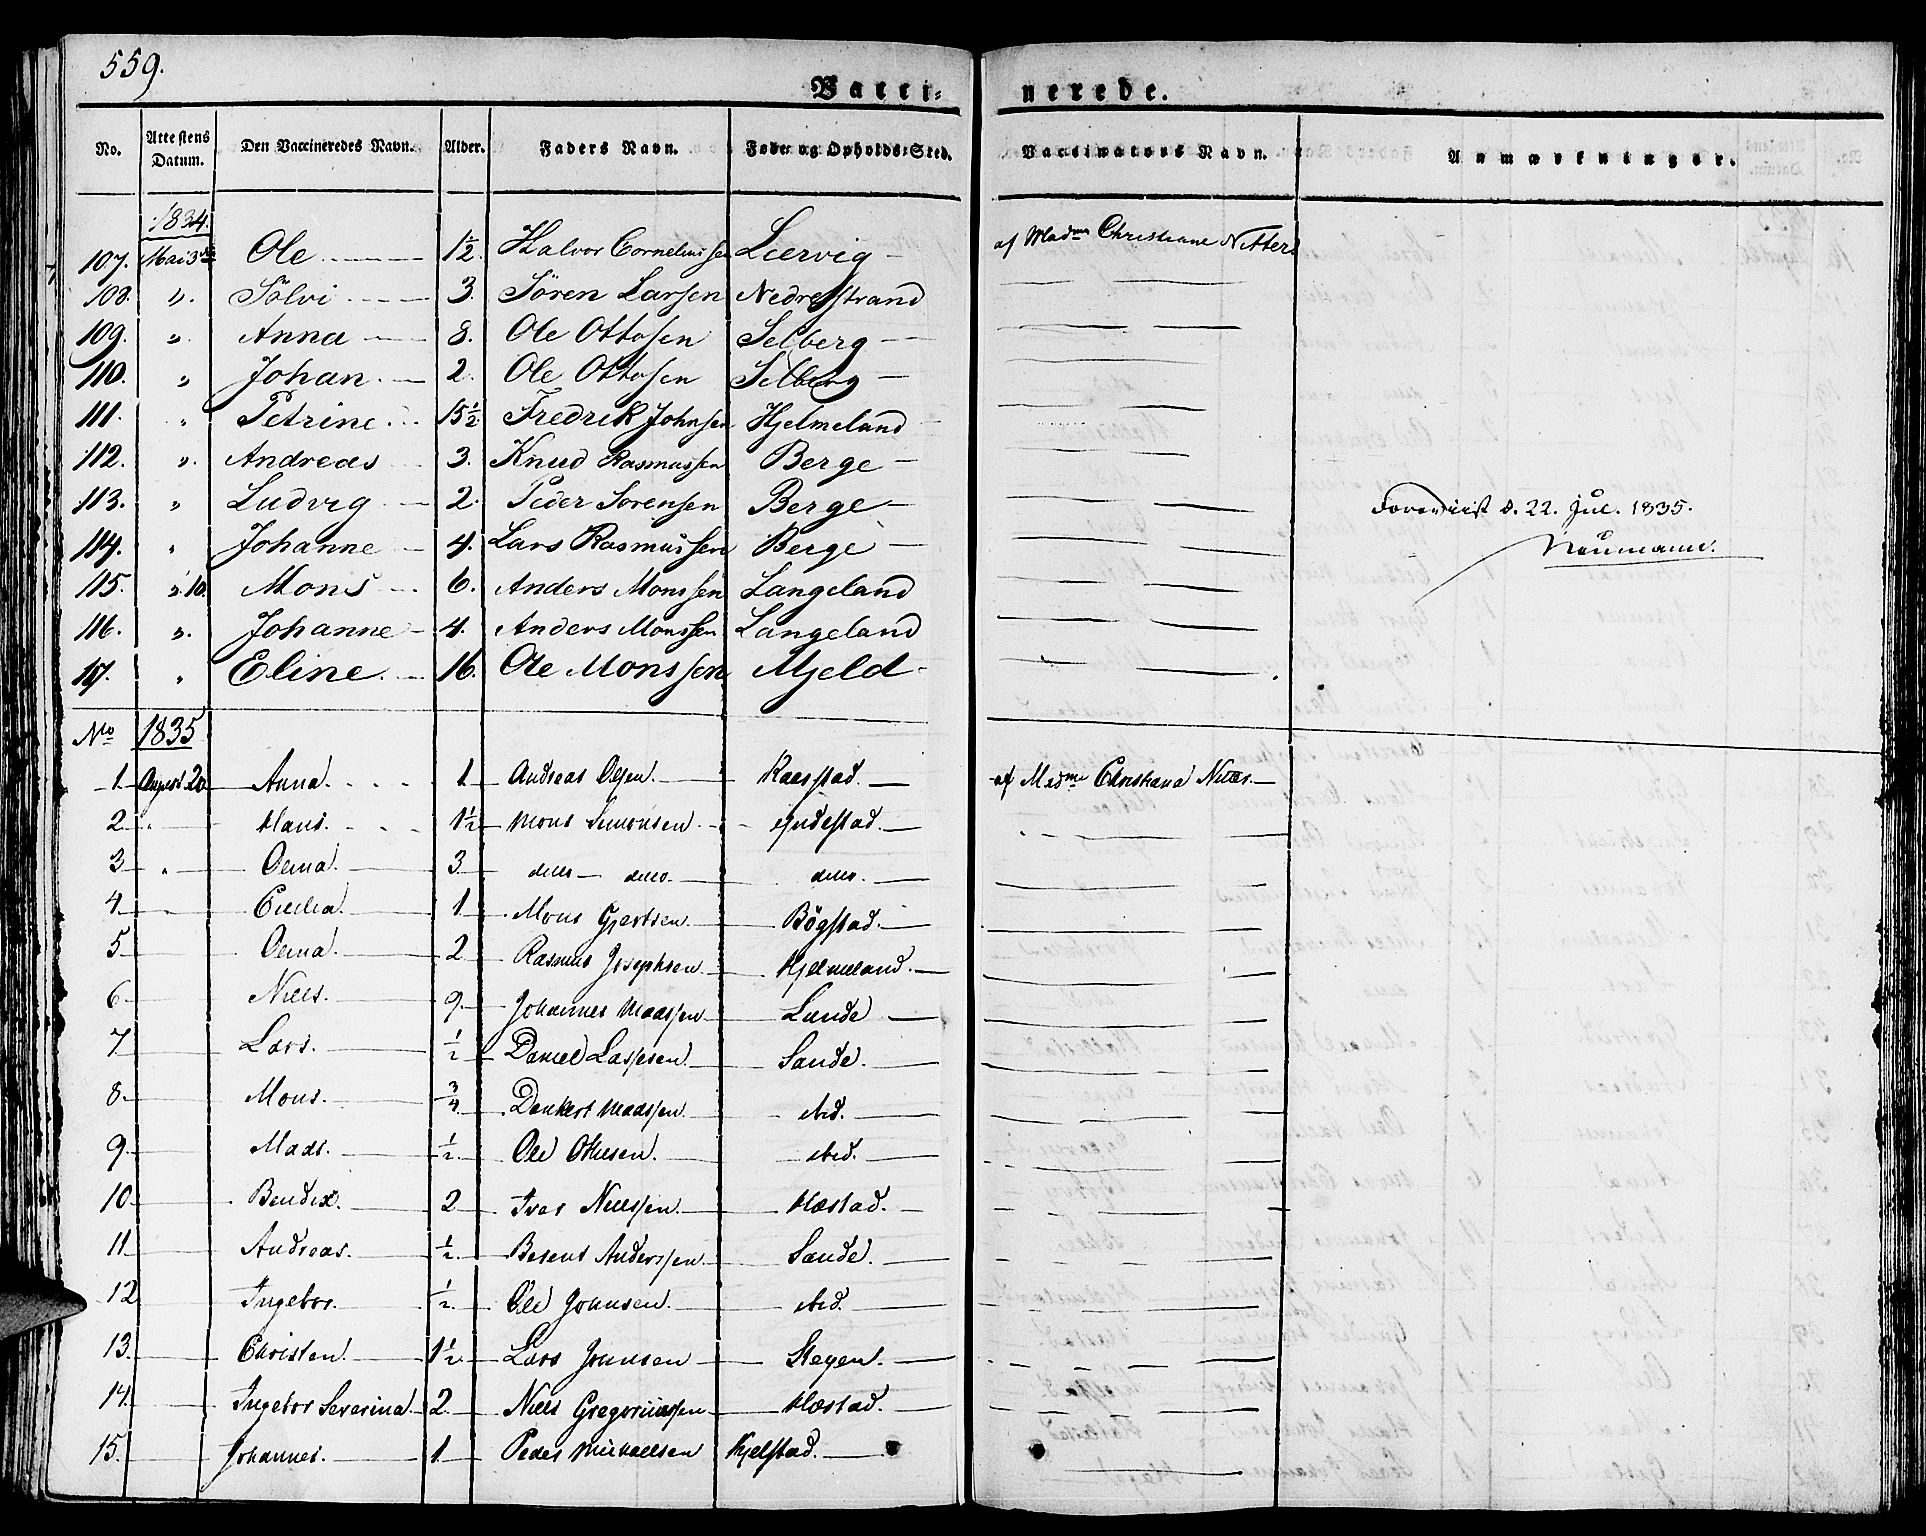 559.
Vacci- nerede.
No. Attestens Datum. Den Vaccineredes Navn. Alder. Faders Navn. Føde og Opholds-Sted. Vaccinators Navn. Anmærkninger.
1834.
107. Mai 3 Ole 1½ Halvor Corneliussen Leervig af Madme Christiane Nitters
108. " Sölvi 3. Sören Larsen Nedrestrand
109. " Anna 8. Ole Ottosen Selberg
110. " Johan 2. Ole Ottosen Selberg
111. " Petrine 15½ Fredrik Johnsen Hjelmeland
112. " Andreas 3. Knud Rasmussen Berge
113. " Ludvig 2. Peder Sorensen Berge Foreviist d. 22. Jul. 1835.
114. " Johanne 4. Lars Rasmussen Berge Neumann.
115. " 10. Mons 6. Anders Monssen Langeland
116. " Johanne 4. Anders Monssen Langeland
117. " Eline 16. Ole Monssen Mjeld
No 1835
1 August 20 Anna 1 Andreas Olsen. Raesstad. af Madme Christiana Nitters
2 " Hans. 1½ Mons Simonsen Indestad.
3 " Oema. 3 ditto ditto ditto.
4 Cecilia. 1 Mons Gjertsen. Bögstad.
5 Oema. 2 Rasmus Josephsen Hjelmeland.
6 Niels. 9 Johannes Madssen Lunde
7 Lars. ½ Daniel Lassesen. Sande.
8 Mons. ¾ Dankert Madssen ibid.
9 Mads. ½ Ole Ottesen. ibid.
10 Bendix. 2 Ivar Nielssen. Hæstad.
11 Andreas. ½ Berent Anderssen. Sande.
12 Ingebor. ½ Ole Johnsen. ibid.
13. Christen. 1½ Lars Johnsen Steyen.
14 Ingebor Severina. 2 Niels Gregoriussen Hæstad.
15. Johannes. 1 Peder Michaelsen Hjelstad.